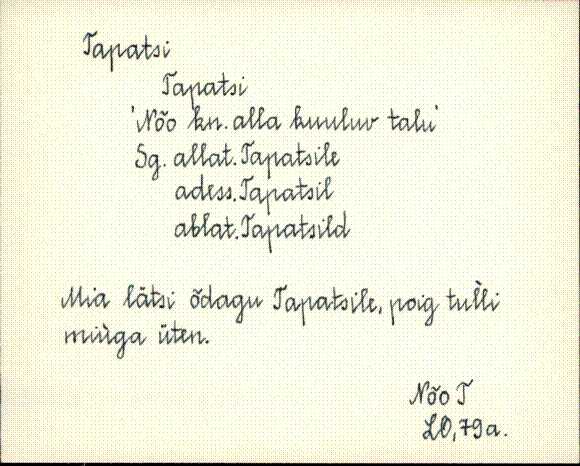 Tapatsi
Tapatsi
'Nõo kn. alla kuuluv talu'
Sg. allat. Tapatsile
adess. Tapatsil
ablat. Tapatsild
Mia lätsi õdagu Tapatsile, poig tul̀li
miuga üten.
Nõo T
LO, 79a.